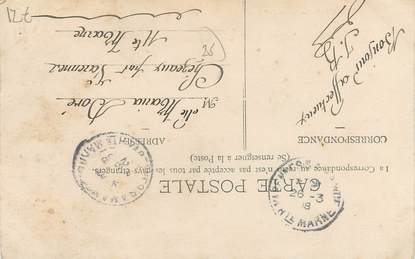 CARTE POSTALE
La Correspondance au recto n'est pas acceptée par tous les pays étrangers
(Se renseigner à la Poste)
CORRESPONDANCE
ADRESSE
Bonjour affectueux
Melle Maria Doré
à Chézeaux par Varennes
Hte Marne
HTE MARNE
26 - 3
HTE MARNE